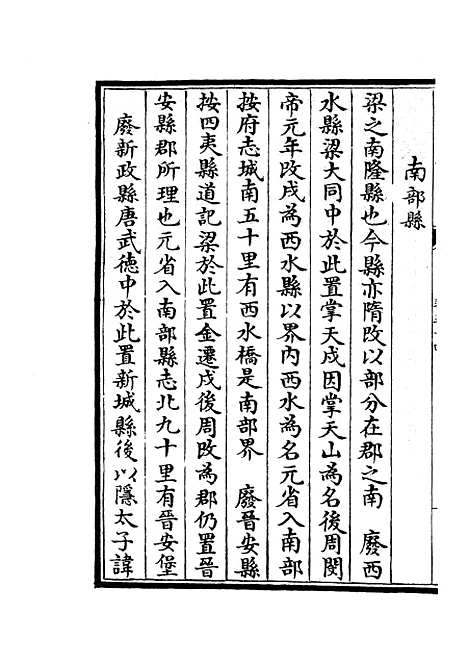 南部縣
梁之南隆縣也今縣亦隋改以部分在郡之南　廢西
水縣梁大同中於此置掌天戍因掌天山為名後周閔
帝元年改戍為西水縣以界内西水為名元省入南部
按府志城南五十里有西水橋是南部界　廢晉安縣
按四夷縣道記梁於此置金遷戍後周改為郡仍置晉
安縣郡所理也元省入南部縣志北九十里有晉安堡
廢新政縣唐武德中於此置新城縣後以隱太子諱